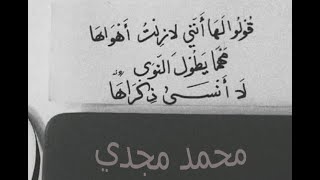 قُولُوا لَهَا أَنَّنِي لازِلْتُ أَهْوَاهَا
مَهْمَا يَطُولَ النَوَى
لَا أَنْسَىٰ ذِكْرَاهَا
محمد مجدي